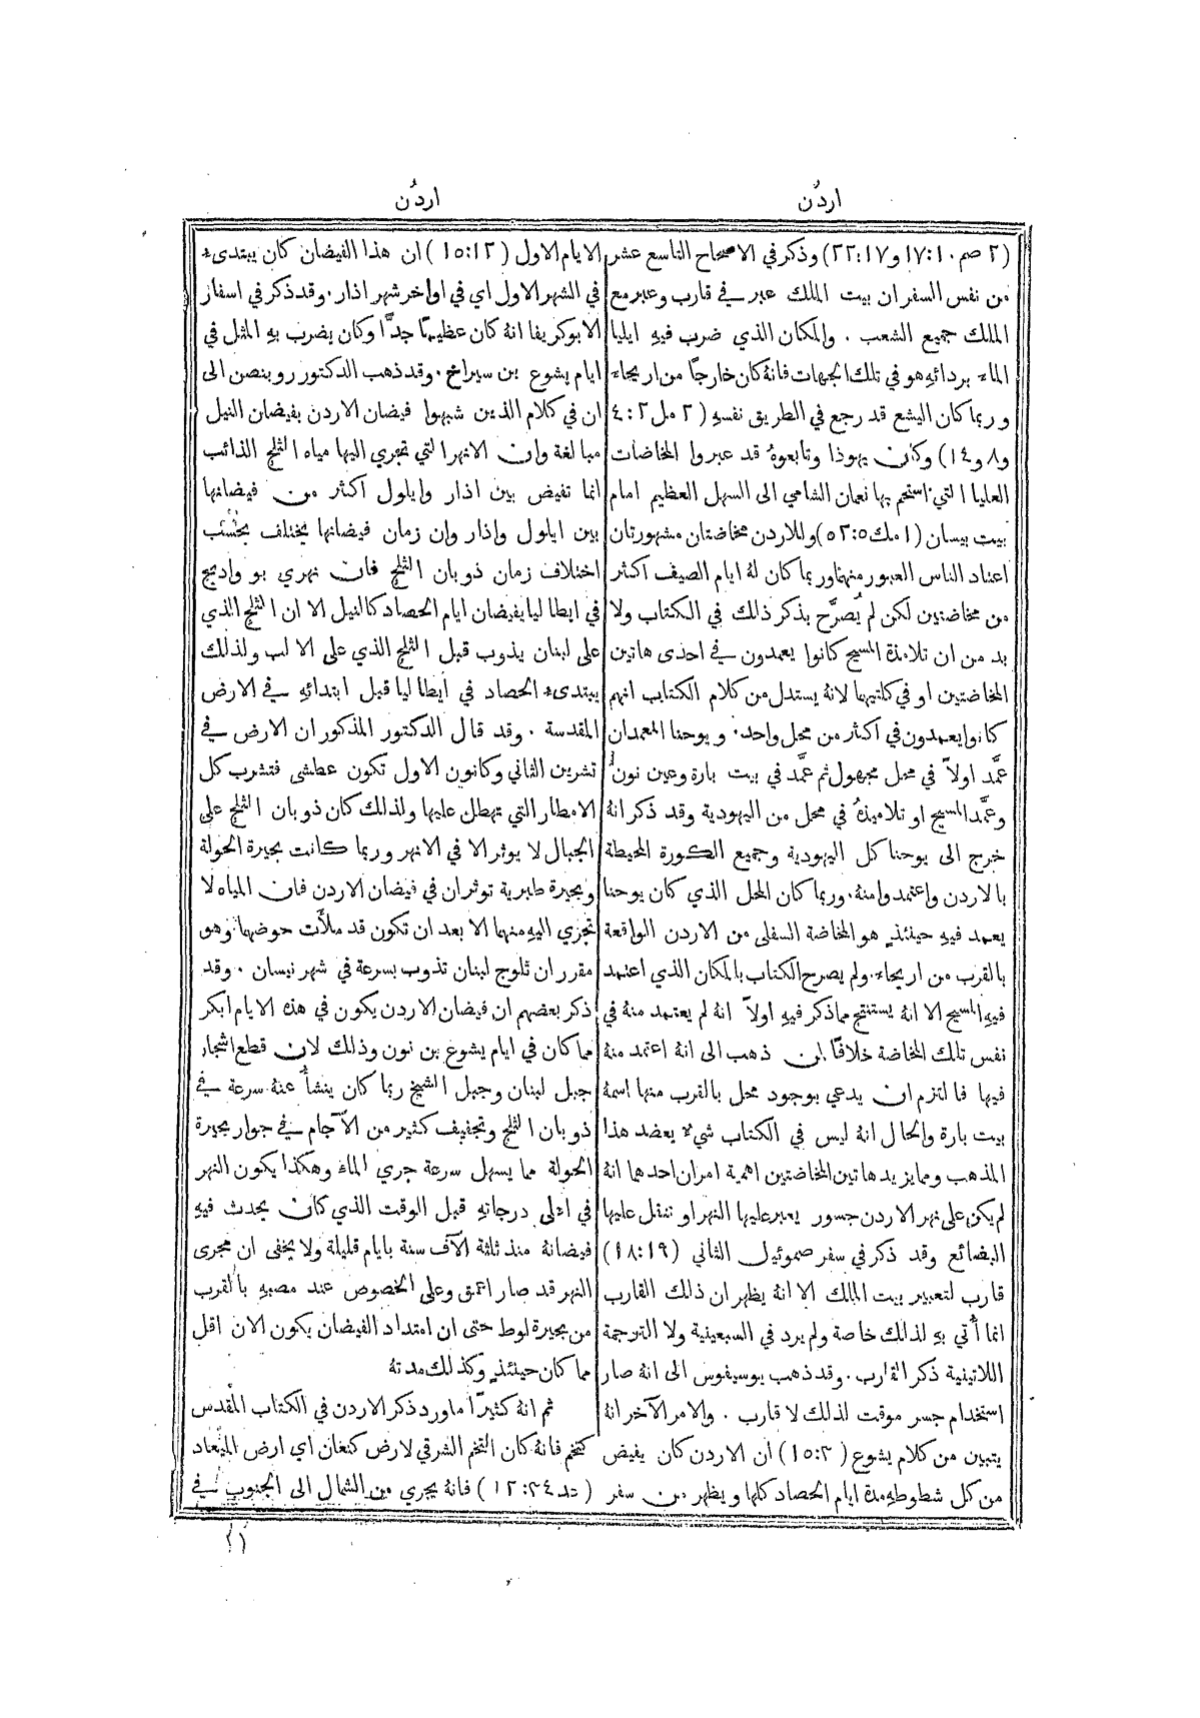 اردُن
اردُن
(٢ صم ١٧:١٠ و٢٢:١٧) وذكر في الاصحاح التاسع عشر
من نفس السفر ان بيت الملك عبر في قارب وعبر مع
الملك جميع الشعب . والمكان الذي ضرب فيهِ ايليا
الماء بردائهِ هو في تلك الجهات فانهُ كان خارجًا من اريحاء
وربما كان اليشع قد رجع في الطريق نفسهِ (٢ مل ٢:٤
و٨ و١٤) وكان يهوذا وتابعوهُ قد عبروا المخاضات
العليا التي استحم بها نعمان الشامي الى السهل العظيم امام
بيت بيسان (١ مك ٥:٥٢) وللاردن مخاضتان مشهورتان
اعتاد الناس العبور منهما وربما كان لهُ ايام الصيف اكثر
من مخاضتين لكن لم يُصرَّح بذكر ذلك في الكتاب ولا
بد من ان تلامذة المسيح كانوا يعمدون في احدى هاتين
المخاضتين او في كلتيهما لانهُ يستدل من كلام الكتاب انهم
كانوا يعمدون في اكثر من محل واحد . ويوحنا المعمدان
عمَّد اولاً في محل مجهول ثم عمَّد في بيت بارة وعين نون
وعمَّد المسيح او تلاميذهُ في محل من اليهودية وقد ذكر انهُ
خرج الى يوحنا كل اليهودية وجميع الكورة المحيطة
بالاردن واعتمدوا منهُ . وربما كان المحل الذي كان يوحنا
يعمد فيهِ حينئذٍ هو المخاضة السفلى من الاردن الواقعة
بالقرب من اريحاء . ولم يصرح الكتاب بالمكان الذي اعتمد
فيهِ المسيح الا انهُ يستنتج مما ذكر فيهِ اولاً انهُ لم يعتمد منهُ في
نفس تلك المخاضة خلافًا لمن ذهب الى انهُ اعتمد منهُ
فيها فالتزم ان يدعي بوجود محل بالقرب منها اسمهُ
بيت بارة والحال انهُ ليس في الكتاب شيء يعضد هذا
المذهب ومما يزيد هاتين المخاضتين اهمية امران احدهما انهُ
لم يكن على نهر الاردن جسور يعبر عليها النهر او تنقل عليها
البضائع وقد ذكر في سفر صموئيل الثاني (١٨:١٩)
قارب لتعبير بيت الملك الا انهُ يظهر ان ذلك القارب
انما أُتي بهِ لذلك خاصة ولم يرد في السبعينية ولا الترجمة
اللاتينية ذكر القارب . وقد ذهب يوسيفوس الى انهُ صار
استخدام جسر موقت لذلك لا قارب . والامر الآخر انهُ
يتبين من كلام يشوع (١٥:٣) ان الاردن كان يفيض
من كل شطوطهِ مدة ايام الحصاد كلها ويظهر من سفر
الايام الاول (١٥:١٢) ان هذا الفيضان كان يبتدئ
في الشهر الاول اي في اواخر شهر اذار . وقد ذكر في اسفار
الابوكريفا انهُ كان عظيمًا جدًّا وكان يضرب بهِ المثل في
ايام يشوع بن سيراخ . وقد ذهب الدكتور روبنصن الى
ان في كلام الذين شبهوا فيضان الاردن بفيضان النيل
مبالغة وان الانهر التي تجري اليها مياه الثلج الذائب
انما تفيض بين اذار وايلول اكثر من فيضانها
بين ايلول واذار وان زمان فيضانها يختلف بحسب
اختلاف زمان ذوبان الثلج فان نهري بو واديج
في ايطاليا يفيضان ايام الحصاد كالنيل الا ان الثلج الذي
على لبنان يذوب قبل الثلج الذي على الالب ولذلك
يبتدئ الحصاد في ايطاليا قبل ابتدائهِ في الارض
المقدسة . وقد قال الدكتور المذكور ان الارض في
تشرين الثاني وكانون الاول تكون عطشى فتشرب كل
الامطار التي تهطل عليها ولذلك كان ذوبان الثلج على
الجبال لا يوثر الا في الانهر وربما كانت بحيرة الحولة
وبحيرة طبرية توثران في فيضان الاردن فان المياه لا
تجري اليهِ منهما الا بعد ان تكون قد ملأت حوضهما وهو
مقرر ان ثلوج لبنان تذوب بسرعة في شهر نيسان . وقد
ذكر بعضهم ان فيضان الاردن يكون في هذه الايام ابكر
مما كان في ايام يشوع بن نون وذلك لان قطع اشجار
جبل لبنان وجبل الشيخ ربما كان ينشأ عنهُ سرعة في
ذوبان الثلج وتجفيف كثير من الآجام في جوار بحيرة
الحولة مما يسهل سرعة جري الماء وهكذا يكون النهر
في اعلى درجاتهِ قبل الوقت الذي كان يحدث فيهِ
فيضانهُ منذ ثلثة الآف سنة بايام قليلة ولا يخفى ان مجرى
النهر قد صار اعمق وعلى الخصوص عند مصبهِ بالقرب
من بحيرة لوط حتى ان امتداد الفيضان يكون الان اقل
مما كان حينئذٍ وكذلك مدتهُ
ثم انهُ كثيرًا ما ورد ذكر الاردن في الكتاب المقدس
كتخم فانهُ كان التخم الشرقي لارض كنعان اي ارض الميعاد
(عد ١٢:٣٤) فانهُ يجري من الشمال الى الجنوب في